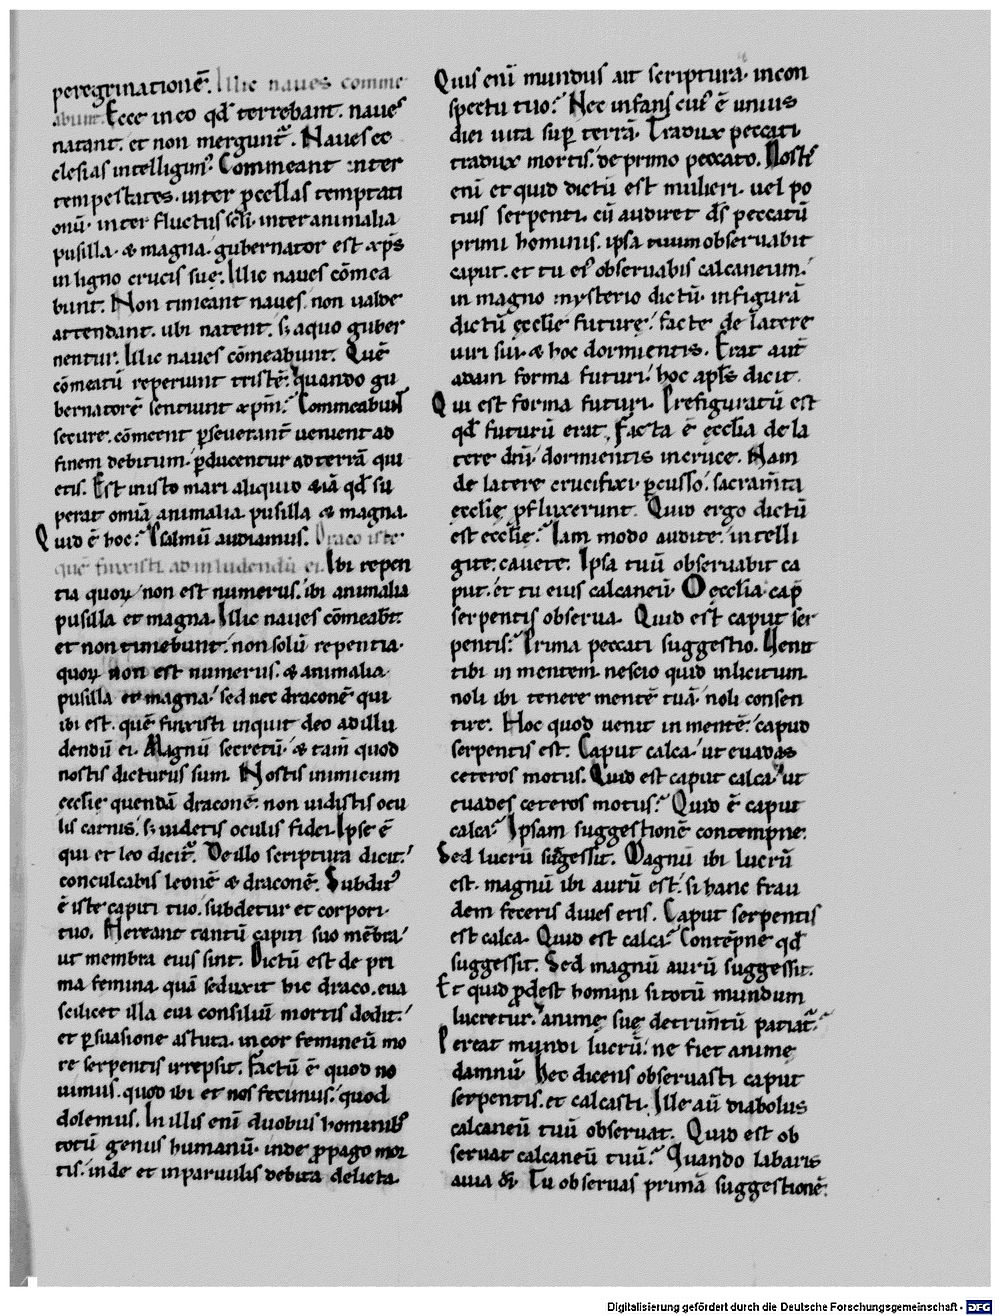 peregrinationē. Illic naues comme
abunt. Ecce in eo qđ terrebant. naues
natant. et non mergunt᷑. Naues ec
clesias intelligim᷒. Commeant inter
tempestates. inter ꝓcellas temptati
onū. inter fluctus sc̄li. inter animalia
pusilla. & magna. gubernator est xp̄s
in ligno crucis suę. Illic naues cōmea
bunt. Non timeant naues. non ualde
attendant. ubi natent. s; a quo guber
nentur. Illic naues cōmeabunt. Quē
cōmeatū reperiunt tristē. quando gu
bernatorē sentiunt xp̄m? Commeabunt
secure. cōmeent ꝑseuerant᷑ uenient ad
finem debitum. ꝑducentur ad terrā qui
etis. Est in isto mari aliquid &iā qđ su
perat omīa animalia pusilla & magna.
Quid ē hoc? Psalmū audiamus. Draco iste
quē finxisti ad inludendū ei. Ibi repen
tia quoꝝ non est numerus. ibi animalia
pusilla et magna. Illic naues cōmeab̄t.
et non timebunt. non solū repentia.
quoꝝ non est numerus. & animalia
pusilla et magna. sed nec draconē qui
ibi est. quē finxisti inquit deo ad illu
dendū ei. Magnū secretū. & tam̄ quod
nostis dicturus sum. Nostis inimicum
ęcclię quendā draconē. non uidistis ocu
lis carnis. s; uidetis oculis fidei. Ipse ē
qui et leo dicit᷑. De illo scriptura dicit.
conculcabis leonē & draconē. Subdit᷒
ē iste capiti tuo. subdetur et corpori
tuo. Hereant tantū capiti suo mēbra.
ut membra eius sint. Dictū est de pri
ma femina. quā seduxit hic draco. eua
scilicet illa cui consiliū mortis dedit.
et ꝑsuasione astuta. in cor femineū mo
re serpentis irrepsit. Factū ē quod no
uimus. quod ibi et nos fecimus. quod
dolemus. In illis enī duobus hominib᷒
totū genus humanū. inde ꝓpago mor
tis. inde et in paruulis debita delicta.
Quis enī mundus ait scriptura. in con
spectu tuo? Nec infans cui᷒ ē unius
diei uita sup̄ terrā. Tradux peccati
tradux mortis. de primo peccato. Nostis
enī et quid dictū est mulieri. uel po
tius serpenti. cū audiret d̄s peccatū
primi hominis. ipsa tuum obseruabit
caput. et tu ei᷒ obseruabis calcaneum.
in magno mysterio dictū. in figurā
dictū ęcclię futurę. factę de latere
uiri sui. & hoc dormientis. Erat aut̄
adam forma futuri. hoc apl̄s dicit.
Qui est forma futuri. Prefiguratū est
qđ futurū erat. Facta ē ęccl̄ia de la
tere dn̄i dormientis in cruce. Nam
de latere crucifixi ꝑcusso. sacram̄ta
ęcclię ꝓfluxerunt. Quid ergo dictū
est ęcclię? Iam modo audite. intelli
gite. cauete. Ipsa tuū obseruabit ca
put. et tu eius calcaneū. O ęccl̄ia cap̄
serpentis obserua. Quid est caput ser
pentis? Prima peccati suggestio. Uenit
tibi in mentem nescio quid inlicitum.
noli ibi tenere mentē tuā. noli consen
tire. Hoc quod uenit in mentē. capud
serpentis est. Caput calca. ut euadas
ceteros motus. Quid est caput calca. ut
euades ceteros motus? Quid ē caput
calca? Ipsam suggestionē contempne.
Sed lucrū suggessit. Magnū ibi lucrū
est. magnū ibi aurū est. si hanc frau
dem feceris diues eris. Caput serpentis
est calca. Quid est calca? Contēpne qđ
suggessit. Sed magnū aurū suggessit.
Et quid ꝓdest homini si totū mundum
lucretur. animę suę detrim̄tū patiat᷑?
Pereat mundi lucrū. ne fiet animę
damnū. Hec dicens obseruasti caput
serpentis. et calcasti. Ille aū diabolus
calcaneū tuū obseruat. Quid est ob
seruat calcaneū tuū? Quando labaris
a uia dī. Tu obseruas primā suggestionē.
Digitalisierung gefördert durch die Deutsche Forschungsgemeinschaft - DFG